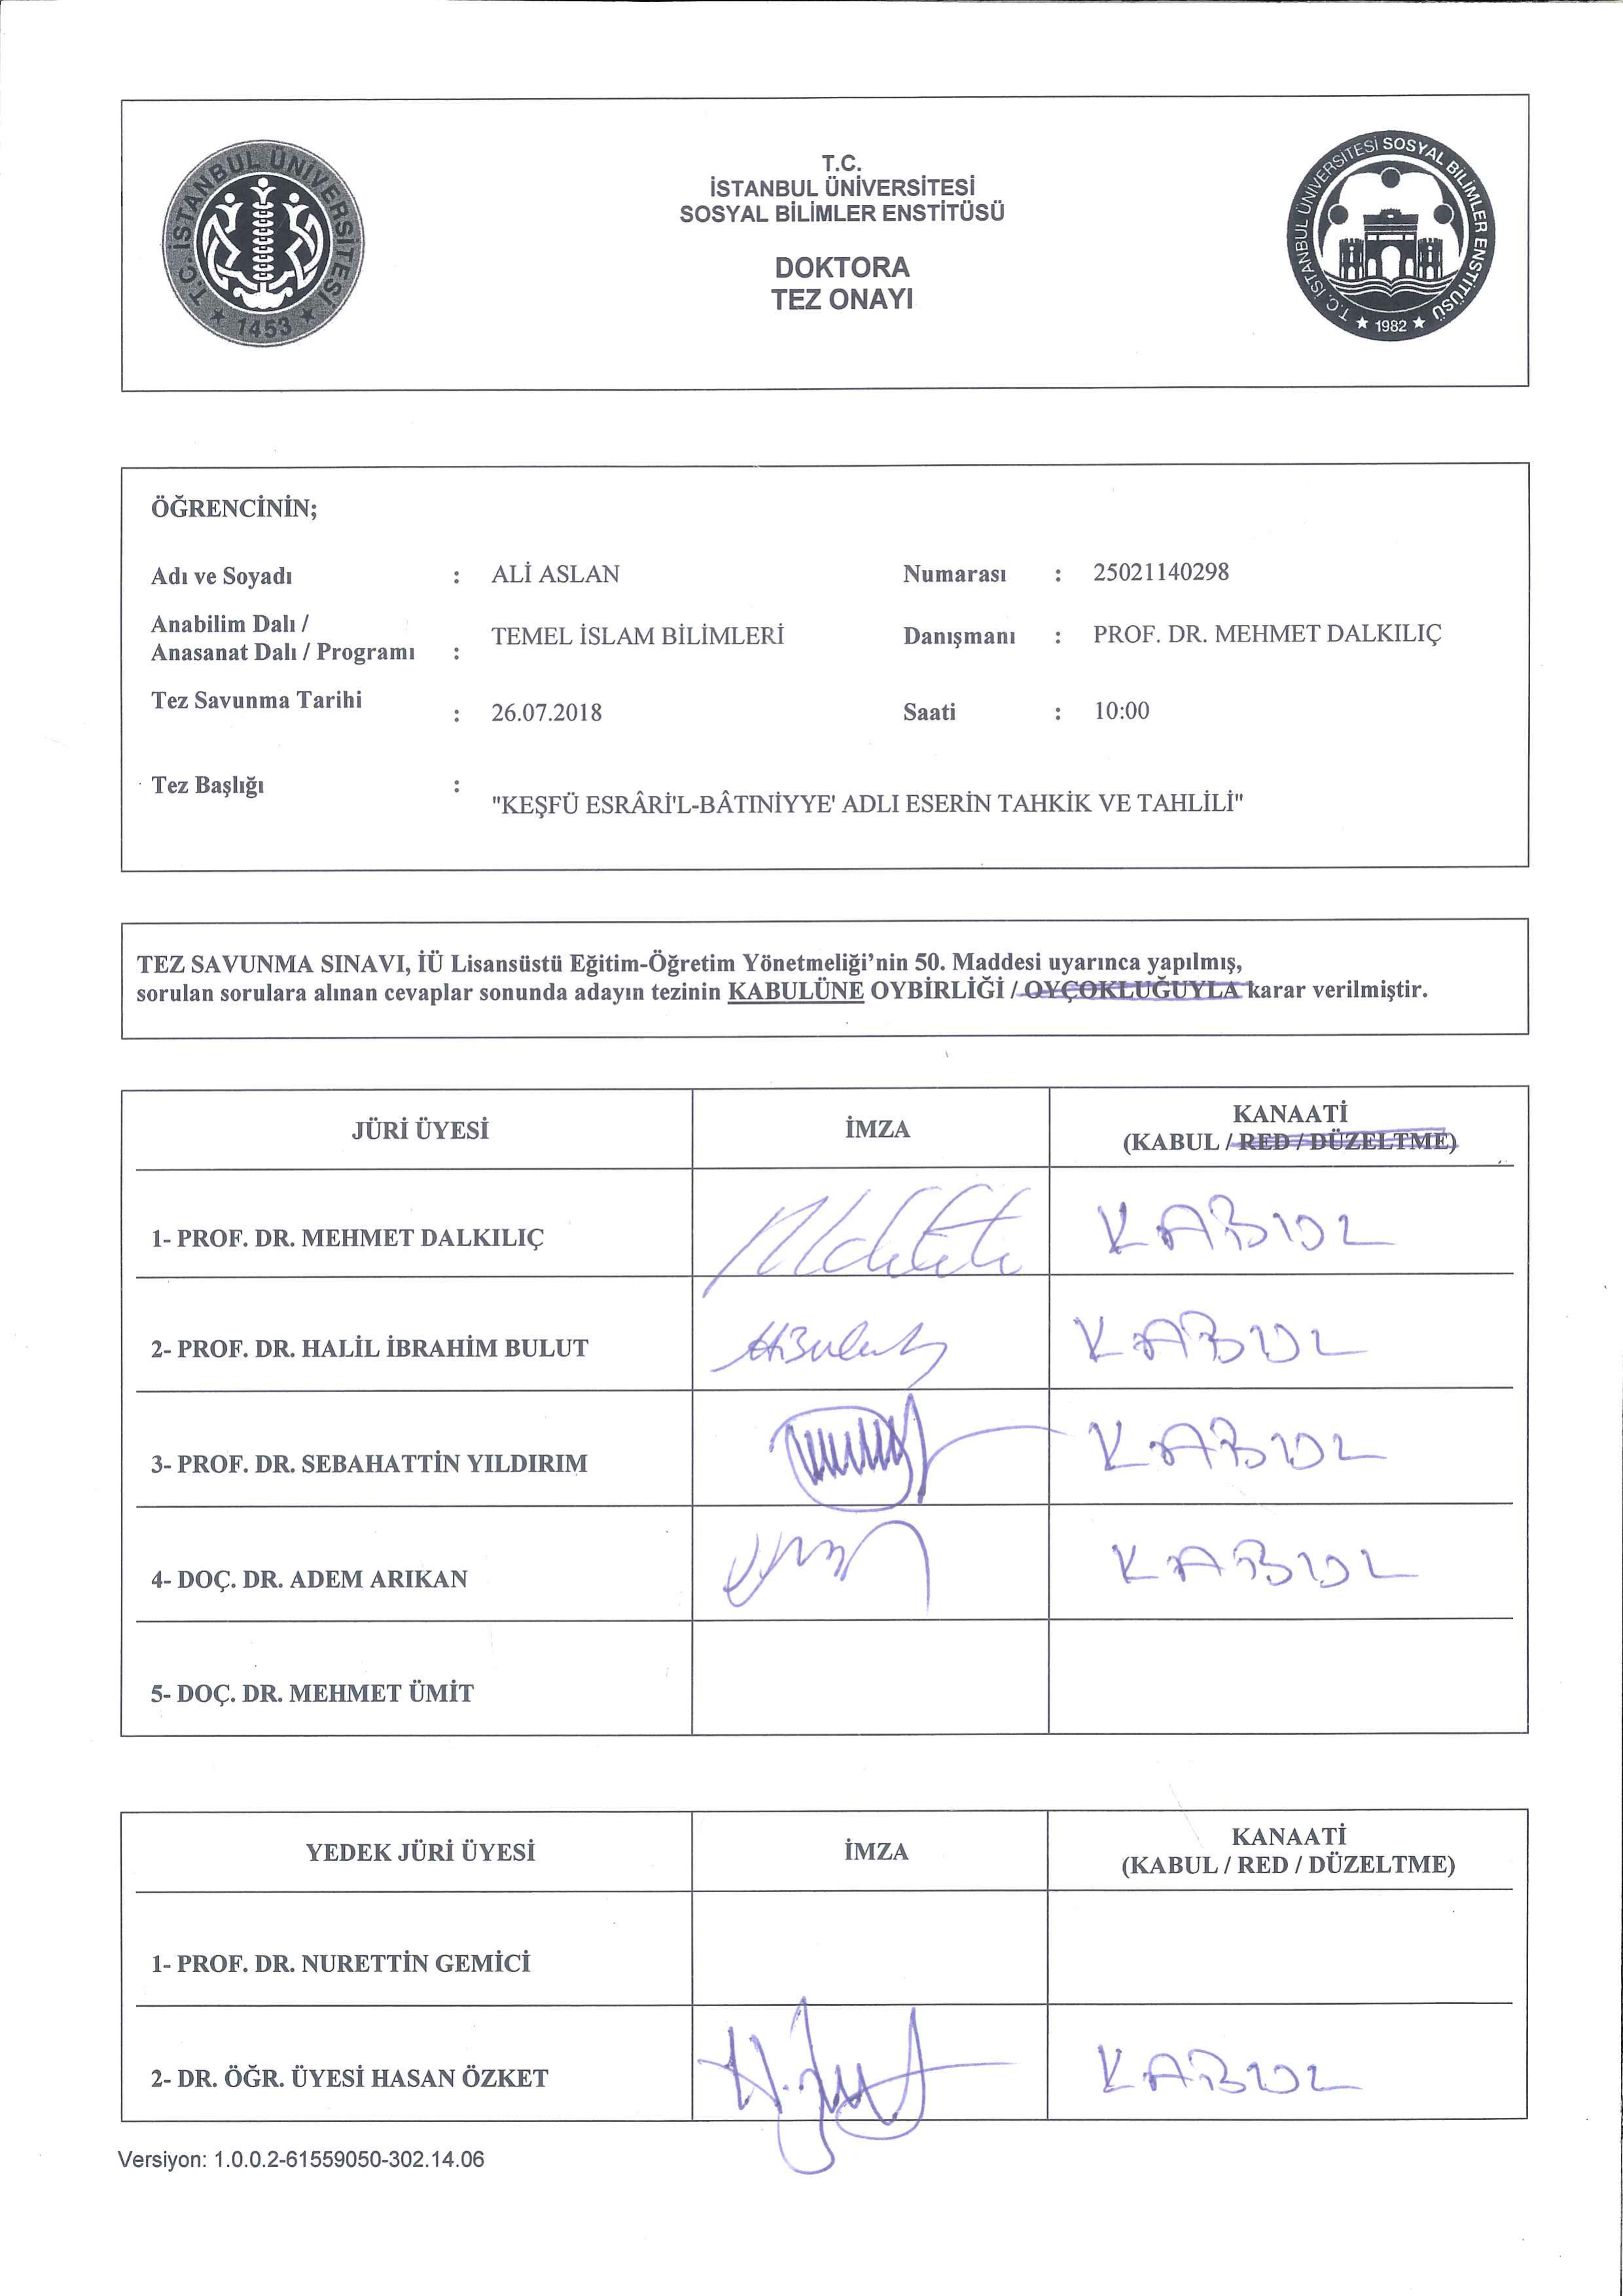 T.C. İSTANBUL ÜNİVERSİTESİ
★ 1453 ★
T.C.
İSTANBUL ÜNİVERSİTESİ
SOSYAL BİLİMLER ENSTİTÜSÜ
DOKTORA
TEZ ONAYI
T.C. İSTANBUL ÜNİVERSİTESİ SOSYAL BİLİMLER ENSTİTÜSÜ
★ 1982 ★
ÖĞRENCİNİN;
Adı ve Soyadı : ALİ ASLAN Numarası : 25021140298
Anabilim Dalı /
Anasanat Dalı / Programı : TEMEL İSLAM BİLİMLERİ Danışmanı : PROF. DR. MEHMET DALKILIÇ
Tez Savunma Tarihi : 26.07.2018 Saati : 10:00
Tez Başlığı : "KEŞFÜ ESRÂRİ'L-BÂTINİYYE' ADLI ESERİN TAHKİK VE TAHLİLİ"
TEZ SAVUNMA SINAVI, İÜ Lisansüstü Eğitim-Öğretim Yönetmeliği’nin 50. Maddesi uyarınca yapılmış,
sorulan sorulara alınan cevaplar sonunda adayın tezinin KABULÜNE OYBİRLİĞİ / OYÇOKLUĞUYLA karar verilmiştir.
JÜRİ ÜYESİ İMZA KANAATİ
(KABUL / RED / DÜZELTME)
1- PROF. DR. MEHMET DALKILIÇ KABUL
2- PROF. DR. HALİL İBRAHİM BULUT HİBulut KABUL
3- PROF. DR. SEBAHATTİN YILDIRIM KABUL
4- DOÇ. DR. ADEM ARIKAN KABUL
5- DOÇ. DR. MEHMET ÜMİT
YEDEK JÜRİ ÜYESİ İMZA KANAATİ
(KABUL / RED / DÜZELTME)
1- PROF. DR. NURETTİN GEMİCİ
2- DR. ÖĞR. ÜYESİ HASAN ÖZKET KABUL
Versiyon: 1.0.0.2-61559050-302.14.06